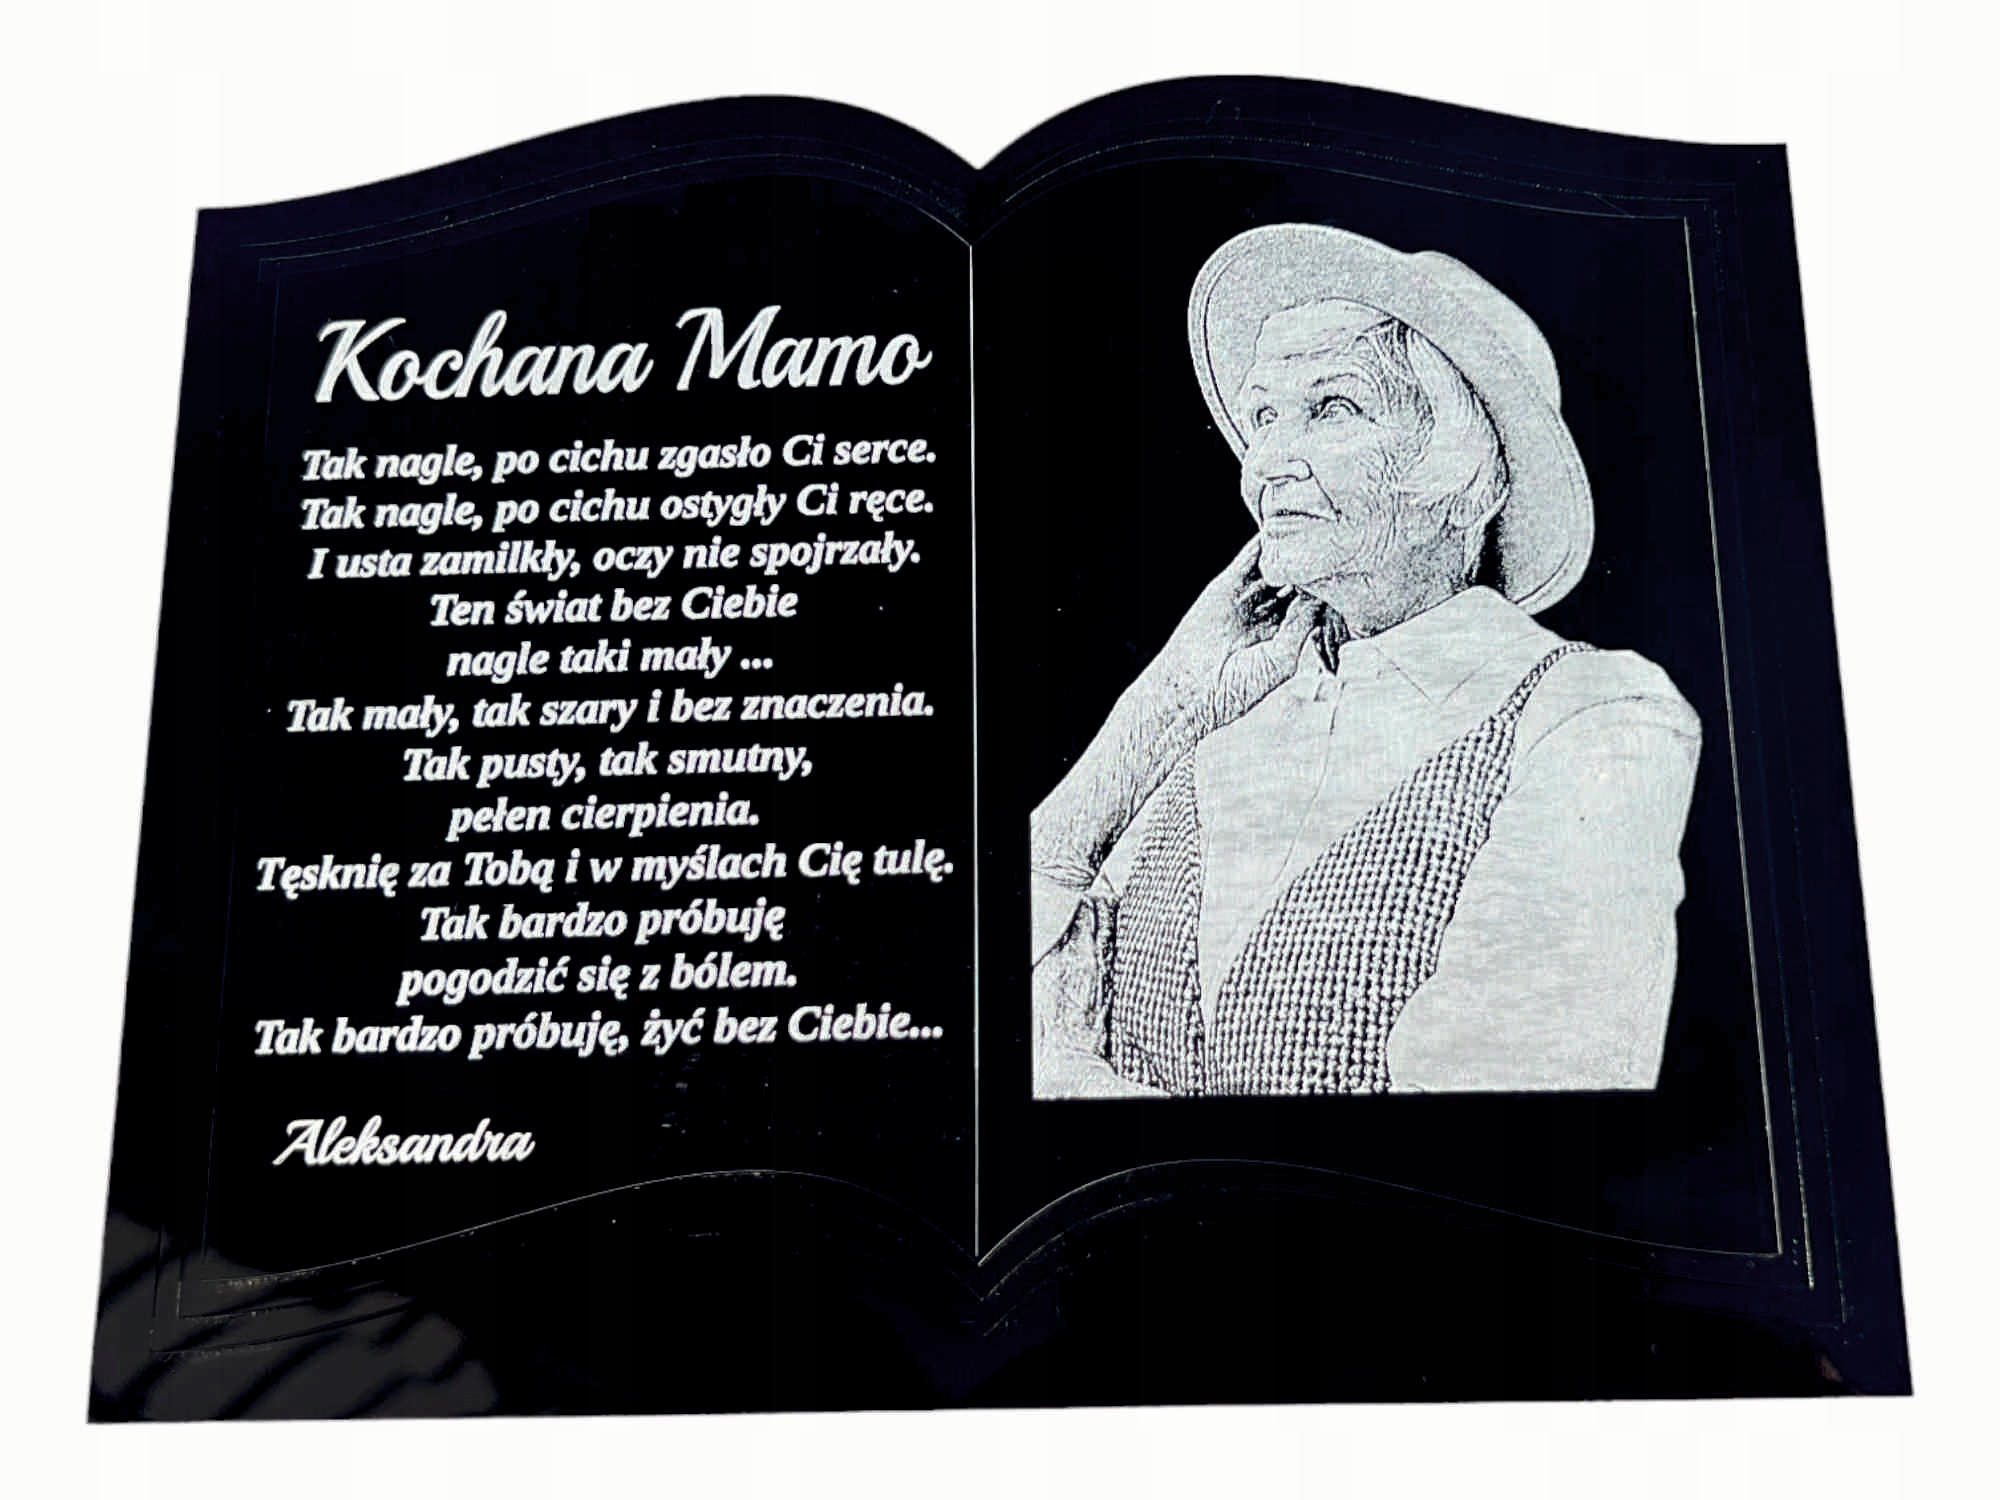 Kochana Mamo
Tak nagle, po cichu zgasło Ci serce.
Tak nagle, po cichu ostygły Ci ręce.
I usta zamilkły, oczy nie spojrzały.
Ten świat bez Ciebie
nagle taki mały ...
Tak mały, tak szary i bez znaczenia.
Tak pusty, tak smutny,
pełen cierpienia.
Tęsknię za Tobą i w myślach Cię tulę.
Tak bardzo próbuję
pogodzić się z bólem.
Tak bardzo próbuję, żyć bez Ciebie...
Aleksandra